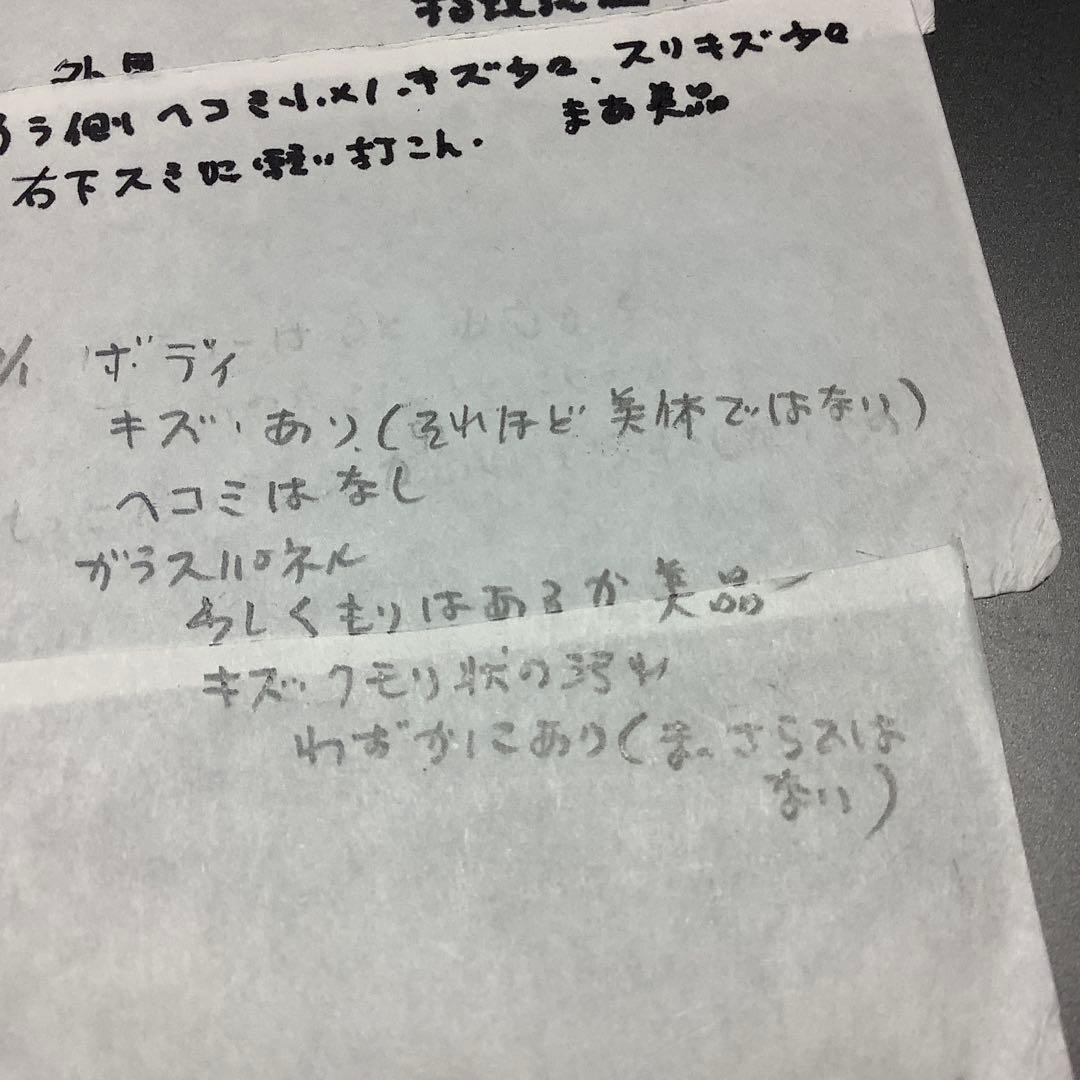 外
う側 ヘコミ小×1.キズ少々、スリキズ少々
まあ美品
右下スミに軽い打こん.
ボディ
キズ・あり(それほど美体ではない)
ヘコミはなし
ガラスパネル
少しくもりはあるが美品
キズ・クモリ状の汚れ
わずかにあり(ま、さらではない)